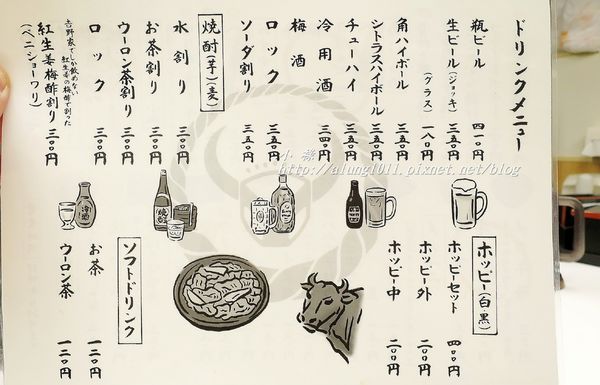 ドリンクメニュー
瓶ビール 四一〇円
生ビール(ジョッキ) 三五〇円
(グラス) 一八〇円
角ハイボール 三五〇円
シトラスハイボール 三五〇円
チューハイ 三五〇円
冷用酒 三四〇円
梅酒
ロック 三五〇円
ソーダ割り 三五〇円
焼酎(芋)(麦)
水割り 三〇〇円
お茶割り 三〇〇円
ウーロン茶割り 三〇〇円
ロック 三〇〇円
吉野家でしか飲めない
紅生姜の梅酢で割った
紅生姜梅酢割り 三〇〇円
(ベニショーワリ)
小祿
http://alung1011.pixnet.net/blog
ホッピー(白・黒)
ホッピーセット 四〇〇円
ホッピー外 二〇〇円
ホッピー中 二〇〇円
ソフトドリンク
お茶 一二〇円
ウーロン茶 一二〇円
焼酎
冷酒